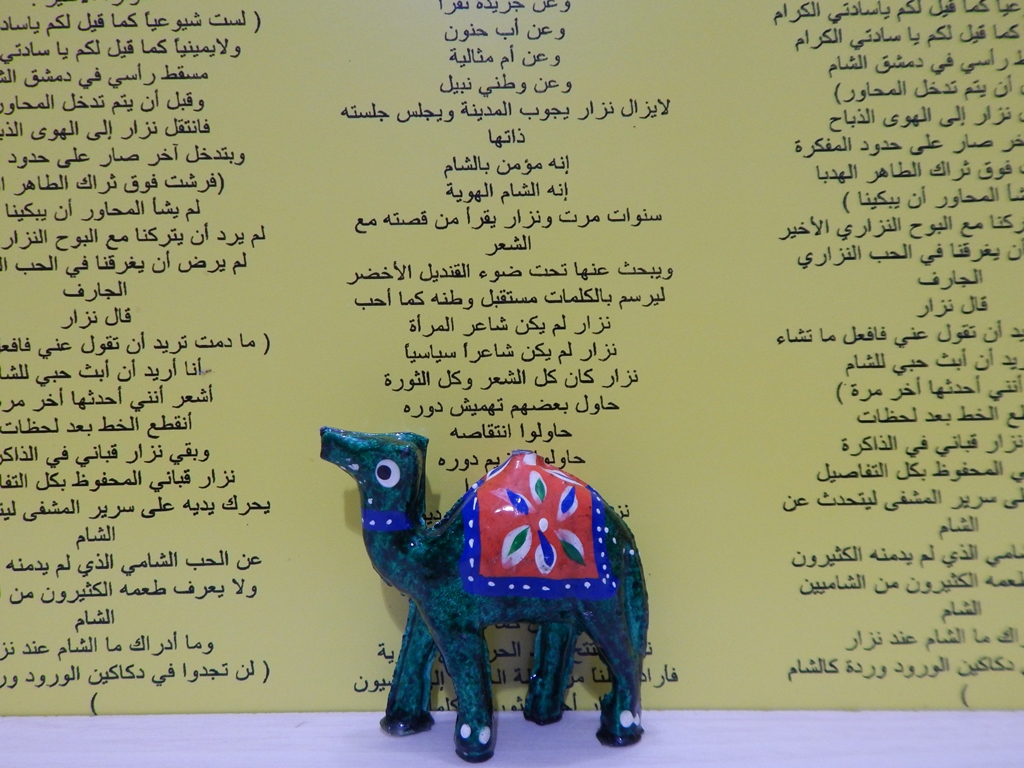 ( لست شيوعياً كما قيل لكم
ولايمينياً كما قيل لكم يا سادتي
مسقط رأسي في دمشق
وقبل أن يتم تدخل المحاور
فانتقل نزار إلى الهوى
وبتدخل آخر صار على حدود
(فرشت فوق ثراك الطاهر
لم يشأ المحاور أن يبكينا
لم يرد أن يتركنا مع البوح
لم يرض أن يغرقنا في الحب
الجارف
قال نزار
( ما دمت تريد أن تقول عني
أنا أريد أن أبث حبي
أشعر أنني أحدثها أخر
أنقطع الخط بعد لحظات
وبقي نزار قباني في
نزار قباني المحفوظ بكل
يحرك يديه على سرير المشفى
الشام
عن الحب الشامي الذي لم يدمنه
ولا يعرف طعمه الكثيرون من
الشام
وما أدراك ما الشام عند
( لن تجدوا في دكاكين الورود
)
وعن جريدة تقرأ
وعن أب حنون
وعن أم مثالية
وعن وطني نبيل
لايزال نزار يجوب المدينة ويجلس جلسته
ذاتها
إنه مؤمن بالشام
إنه الشام الهوية
سنوات مرت ونزار يقرأ من قصته مع
الشعر
ويبحث عنها تحت ضوء القنديل الأخضر
ليرسم بالكلمات مستقبل وطنه كما أحب
نزار لم يكن شاعر المرأة
نزار لم يكن شاعراً سياسياً
نزار كان كل الشعر وكل الثورة
حاول بعضهم تهميش دوره
حاولوا انتقاصه
دوره
كما قيل لكم ياسادتي الكرام
كما قيل لكم يا سادتي الكرام
رأسي في دمشق الشام
أن يتم تدخل المحاور)
نزار إلى الهوى الذباح
صار على حدود المفكرة
فوق ثراك الطاهر الهدبا
المحاور أن يبكينا )
مع البوح النزاري الأخير
أن يغرقنا في الحب النزاري
الجارف
قال نزار
أن تقول عني فافعل ما تشاء
أن أبث حبي للشام
أنني أحدثها أخر مرة )
الخط بعد لحظات
نزار قباني في الذاكرة
المحفوظ بكل التفاصيل
على سرير المشفى ليتحدث عن
الشام
الذي لم يدمنه الكثيرون
طعمه الكثيرون من الشاميين
الشام
ما الشام عند نزار
دكاكين الورود وردة كالشام
)